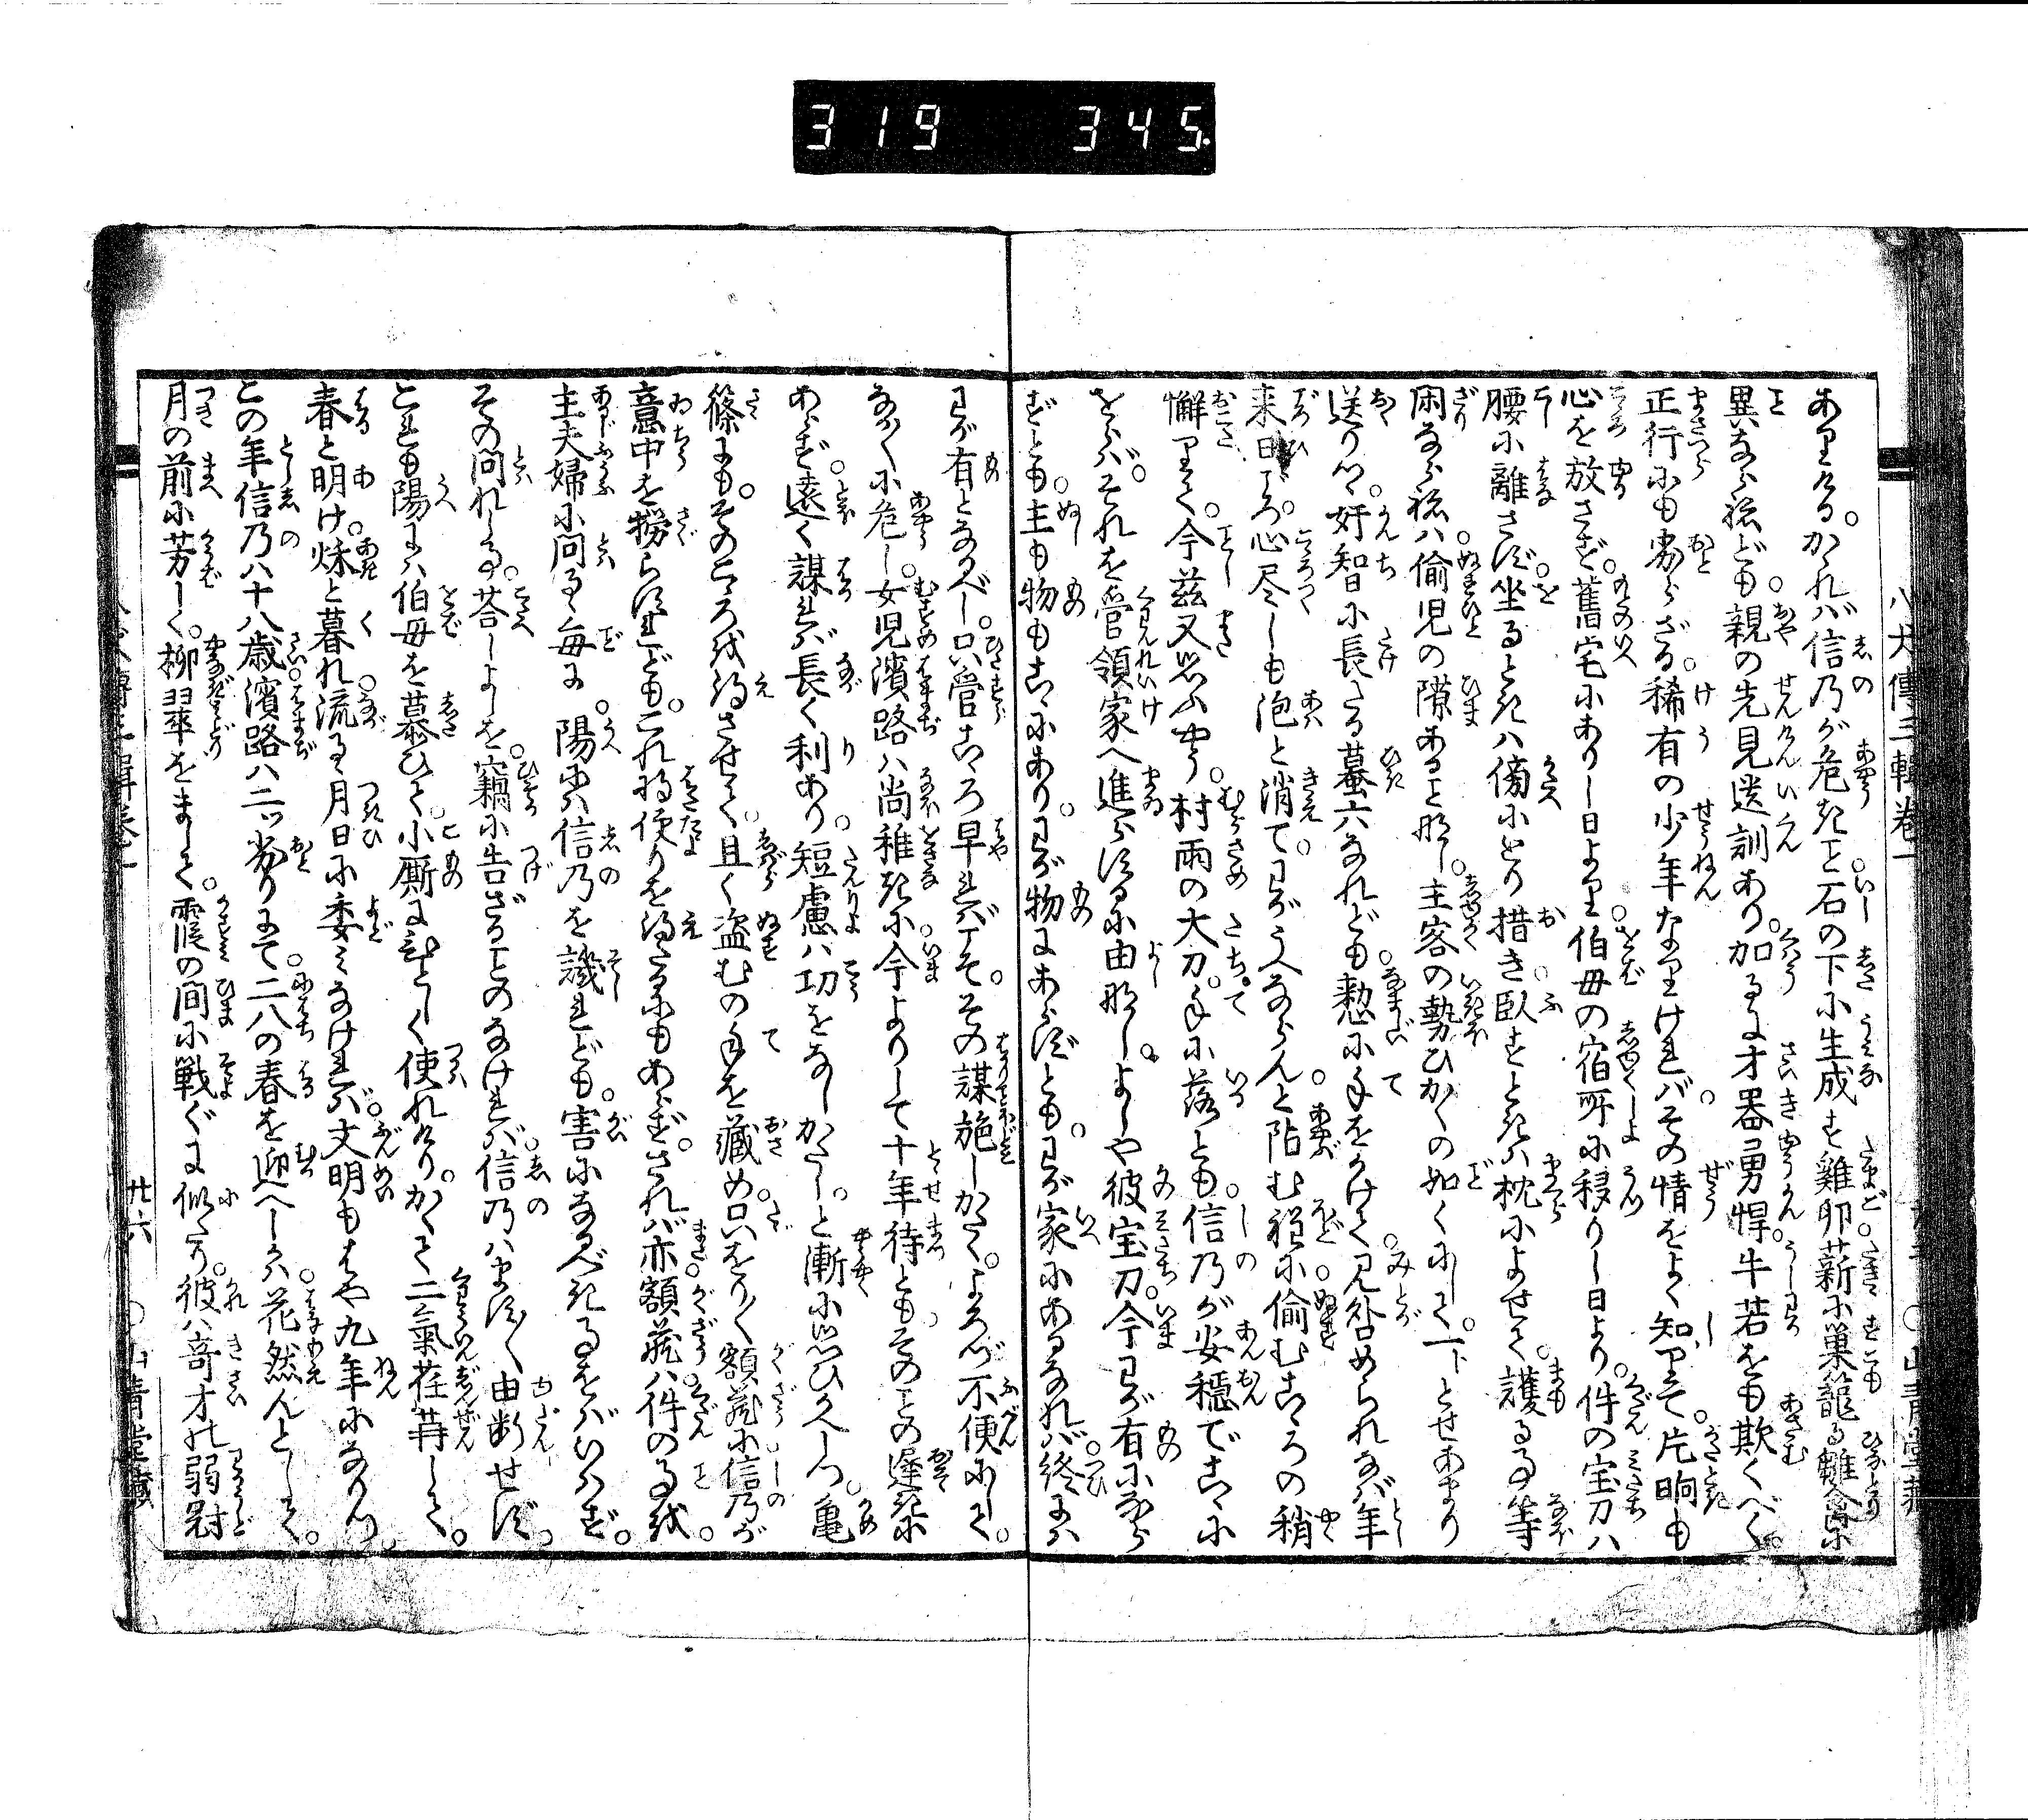 319 345
八犬傳三輯卷一
あり

ける。かゝれば信乃が危きこと石の下に生成す雞卵薪に巣籠る雛禽に
異ならねども。親の先見遺訓あり。加るに才器勇悍。牛若をも欺くべく。
正行にも劣らざる。稀有の少年なりければ。その情をよく知りて。片晌も
心を放さず。舊宅にありし日より。伯母の宿所に移りし日より。件の宝刀は
腰に離さず。坐るときは傍にとり措き臥すときは枕によせて。護る事等
閑ならねば。偸児の隙あることなし。主客の勢ひかくの如くにして。一下とせあまり
送りつ。奸智に長たる蟇六なれども。憖に手をかけて。見咎められなば年
来日ごろ。心尽しも泡と消て。わがうへならんと阽む程に。偸むこゝろの稍
懈りて。今茲又思ふやう。村雨の大刀。手に落とも。信乃が安穏でこゝに
をらば。それを管領家へ進らするに由なし。よしや彼宝刀。今わが有にならず
ずとも。主も物もこゝにあり。わが物にあらずとも。わが家にあるなれば。終には
わが有となるべし。只管こゝろ早ればぞ。その謀施しかたく。よろづ不便にして。
なか〳〵に危し。女児濱路は尚稚きに。今よりして十年待とも。そのことの遅きに
あらず。遠く謀れば長く利あり。短慮は功をなしかたし。と漸に思ひかへしつ。亀
篠にも。そのこゝろを得させて。且く盗むの手を藏め。只をり〳〵額藏に信乃が
意中を撈らすれども。これ将便りを得たるにもあらず。されば亦額藏は。件の事を。
主夫婦に問るゝ毎に。陽には信乃を譏れども。害になるべき事をばいはず。
その問れし事。荅しよしを。竊に告ざることのなければ。信乃はます〳〵由断せず。
これも陽には伯母を慕ひて。小廝にひとしく使れけり。かくて二氣荏苒して。
春と明け。烁と暮れ。流るゝ月日に委ミなければ。文明もはや九年になりつ。
この年信乃は十八歳。濱路は二ッ劣りにて。二八の春を迎へしかば。花然んとして。
月の前に芳しく。柳翠をまして。霞の間に戦ぐに似たり。彼は奇才の弱冠
八犬傳三輯卷一
廿六
山青堂藏